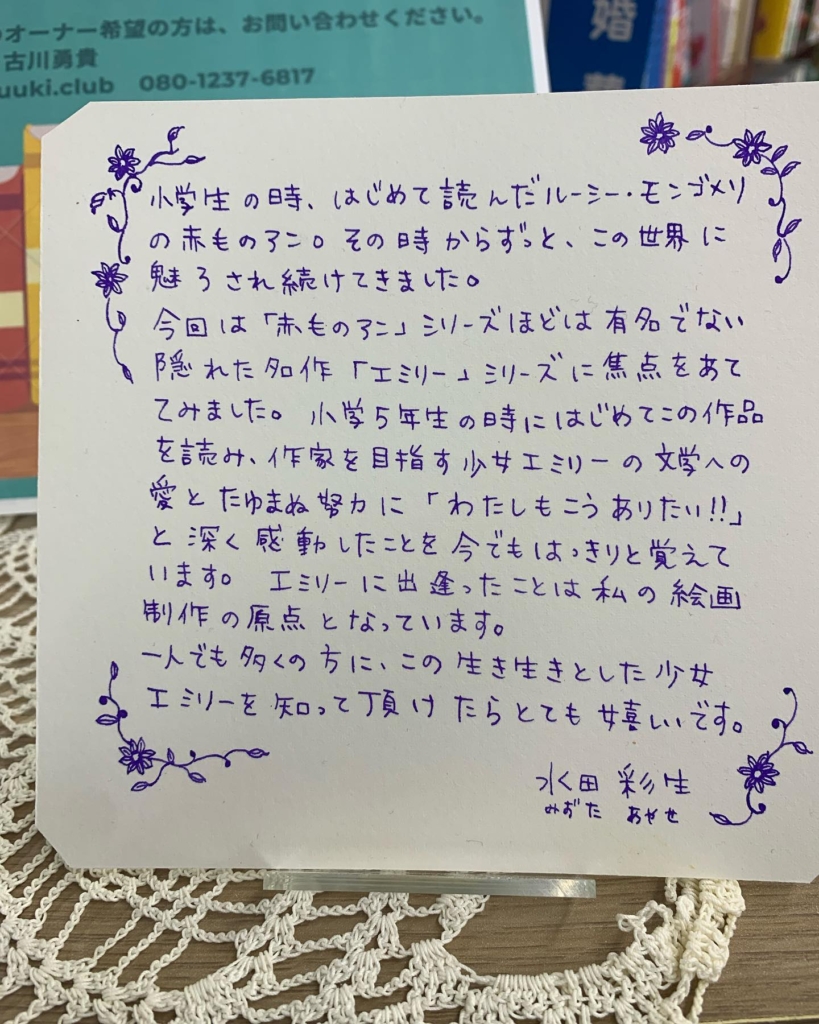 オーナー希望の方は、お問い合わせください。
古川勇貴
uuki.club 080-1237-6817
婚
小学生の時、はじめて読んだルーシー・モンゴメリ
の赤毛のアン。その時からずっと、この世界に
魅了され続けてきました。
今回は「赤毛のアン」シリーズほどは有名でない
隠れた名作「エミリー」シリーズに焦点をあて
てみました。小学5年生の時にはじめてこの作品
を読み、作家を目指す少女エミリーの文学への
愛とたゆまぬ努力に「わたしもこうありたい!!」
と深く感動したことを今でもはっきりと覚えて
います。エミリーに出逢ったことは私の絵画
制作の原点となっています。
一人でも多くの方に、この生き生きとした少女
エミリーを知って頂けたらとても嬉しいです。
水田彩生
みずた あやせ